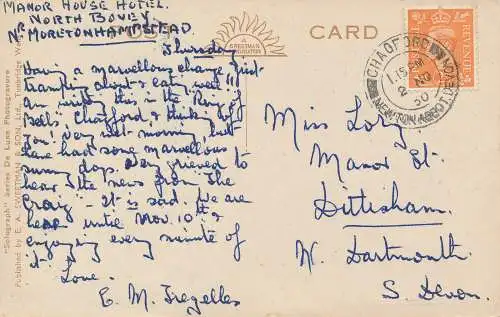 MANOR HOUSE HOTEL.
NORTH BOVEY
Nr MORETONHAMPSTEAD.
Thursday
Having a marvellous change, just
& eat, we'll
am writing this in the Ring of
Bells, Chagford, & thinking of
you! Very wet morning but
have had some marvellous
sunny days. Very grieved to
hear the news from The
Craig - It is sad. We are
here until Nov. 10th &
enjoying every minute of
it. Love.
E. M. Tregelles
A
SWEETMAN
CARD
Miss Lory
Manor St.
Dittisham.
Nr. Dartmouth.
S. Devon.
CHAGFORD
NEWTON ABBOT DEVON
1 15 PM
2 NO
50
REVENUE
"Solograph" Series De Luxe Photogravure
Published by E. A. SWEETMAN & SON, Ltd., Tunbridge Wells